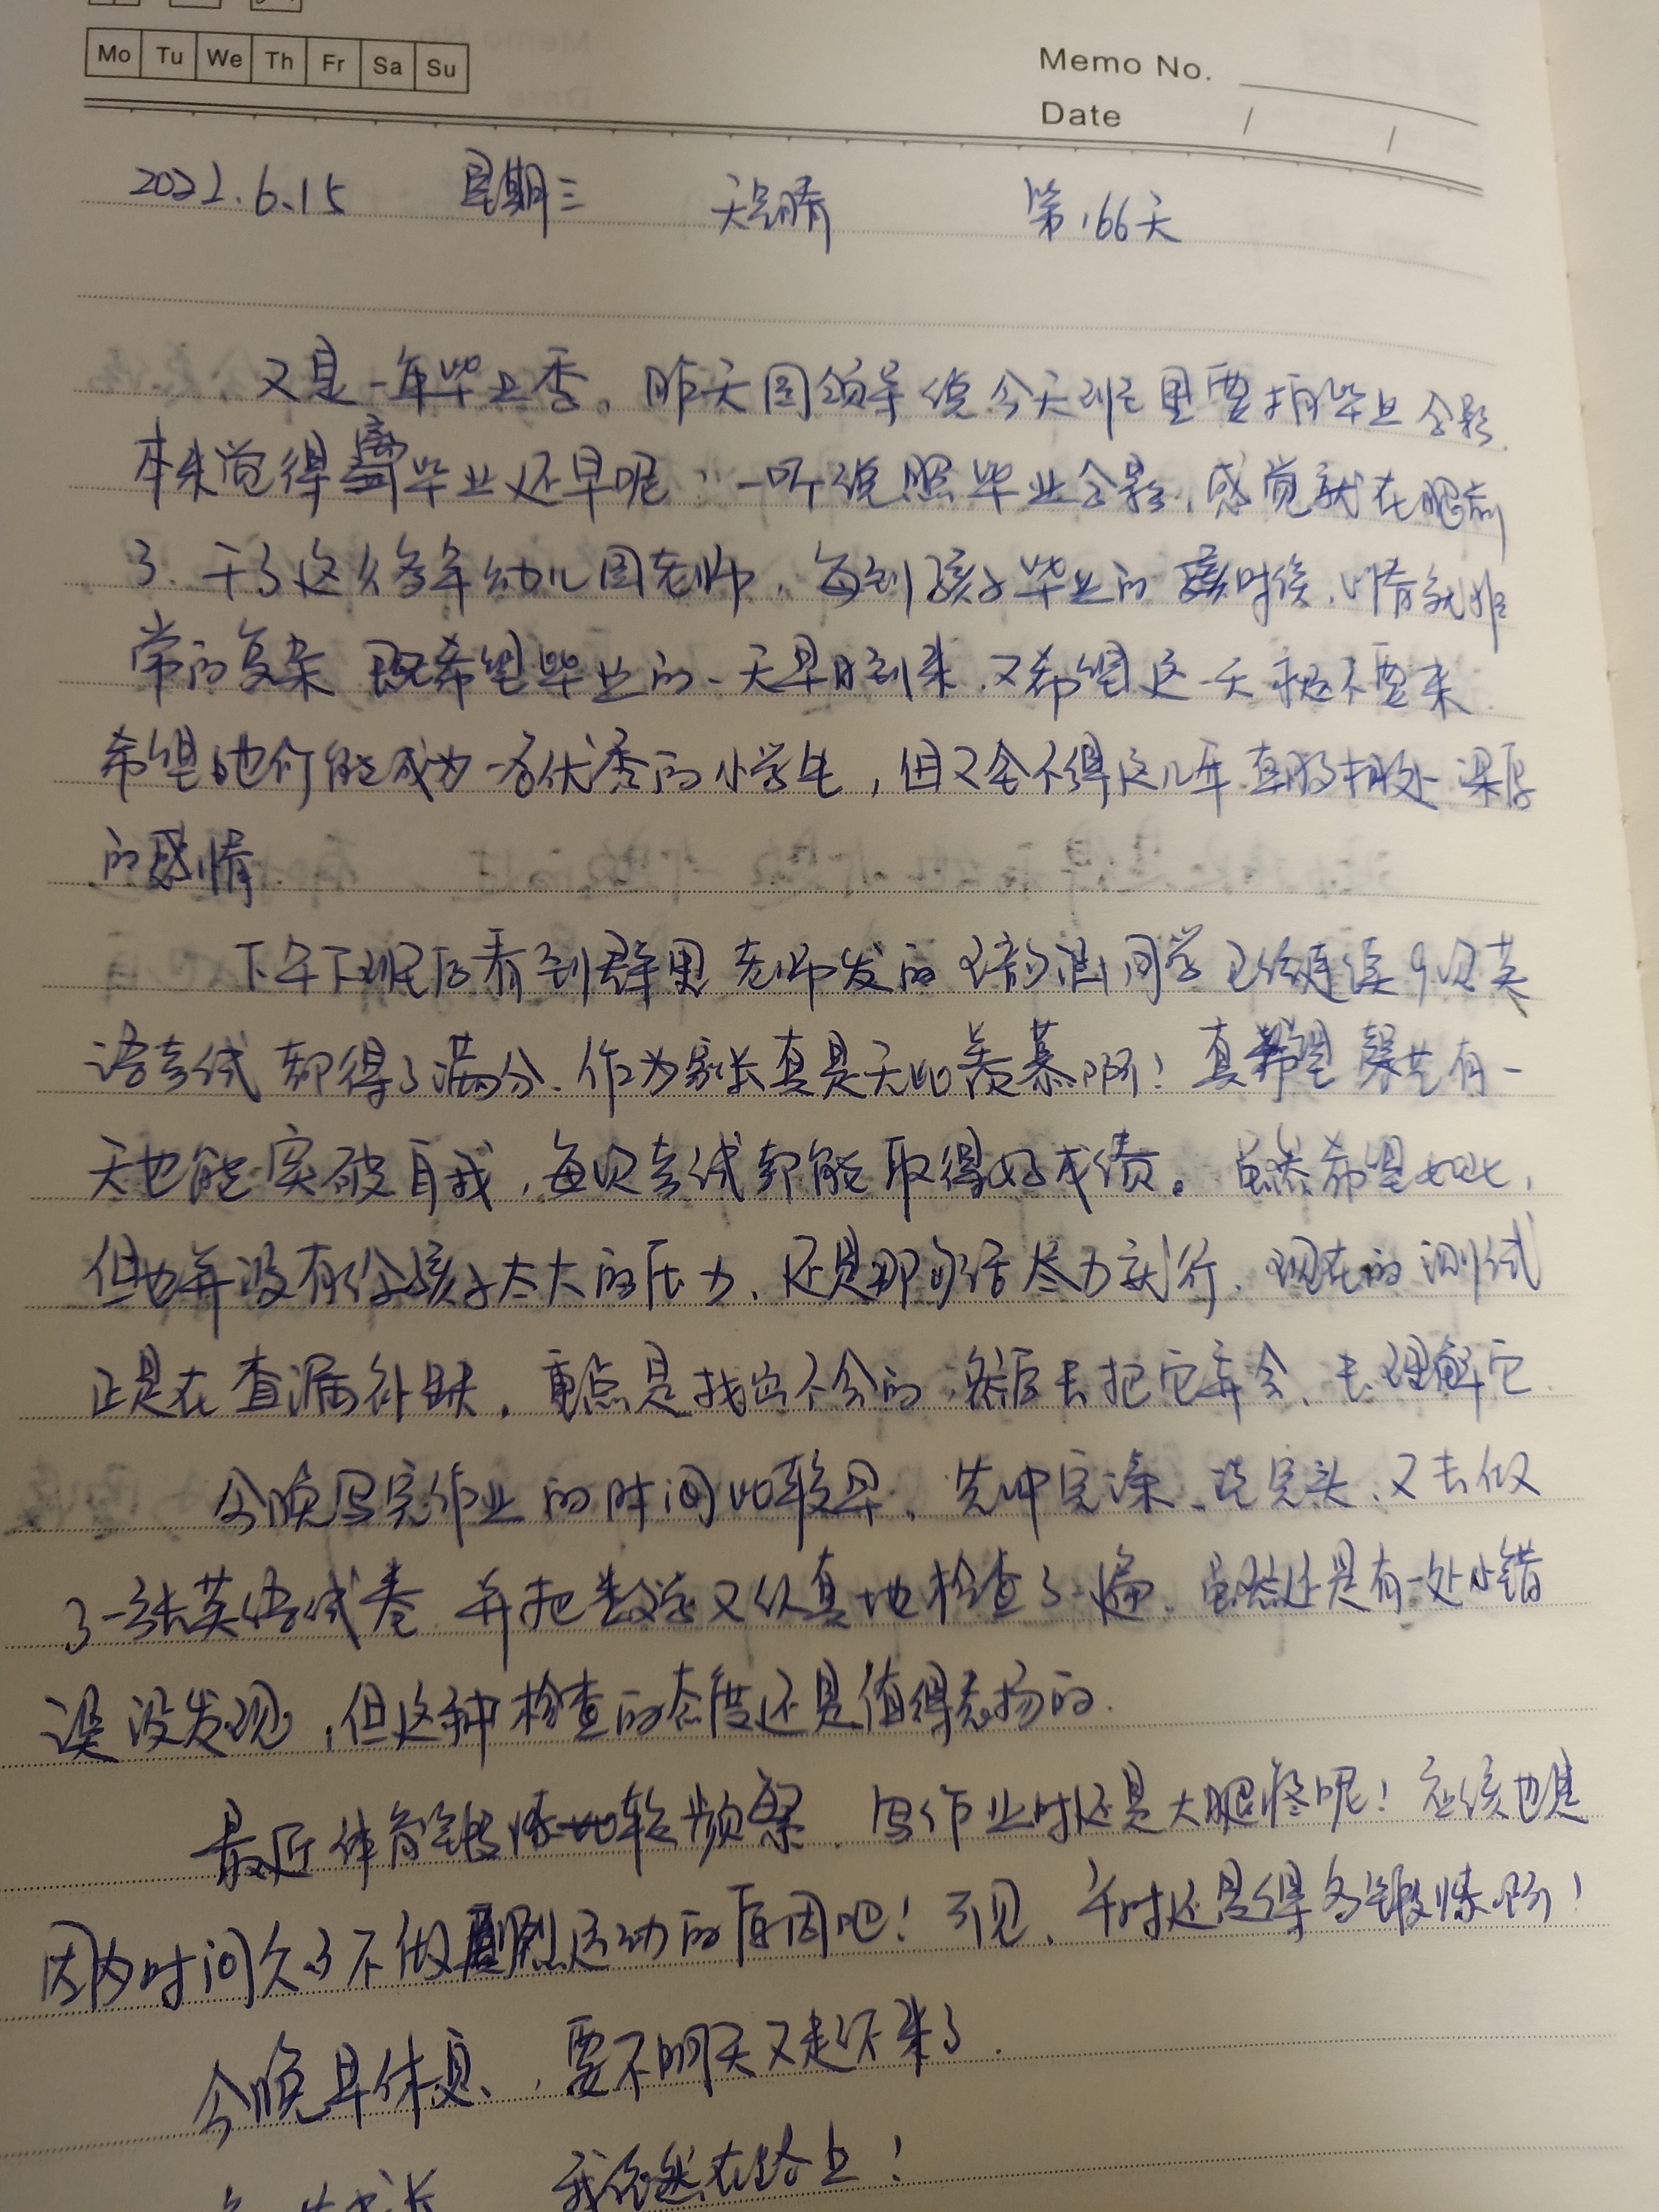 Mo Tu We Th Fr Sa Su
Memo No.
Date / /
2022.6.15 星期三 天气晴 第166天
又是一年毕业季,昨天园领导说今天班里要拍毕业合影.
本来觉得离毕业还早呢,一听说照毕业合影,感觉就在眼前
了.干了这么多年幼儿园老师,每到孩子毕业的时候,心情就非
常的复杂 既希望毕业的一天早日到来,又希望这一天永远不要来.
希望他们能成为一名优秀的小学生,但又舍不得这几年朝夕相处深厚
的感情.
下午下班后看到群里老师发的同学已经连续9次英
语考试都得了满分.作为家长真是无比羡慕啊!真希望馨艺有一
天也能突破自我,每次考试都能取得好成绩。虽然希望如此,
但也并没有给孩子太大的压力,还是那句话尽力就行,现在的测试
正是在查漏补缺,重点是找出不会的,然后去把它弄会、去理解它.
今晚写完作业的时间比较早,先冲完澡、洗完头,又去做
了一张英语试卷 并把数学又认真地检查了一遍,虽然还是有一处小错
误没发现,但这种检查的态度还是值得表扬的.
最近体育锻炼比较频繁,写作业时还是大腿疼呢!应该也是
因为时间久了不做剧烈运动的原因吧!可见,平时还是得多锻炼啊!
今晚早休息,要不明天又起不来了.
我依然在路上!